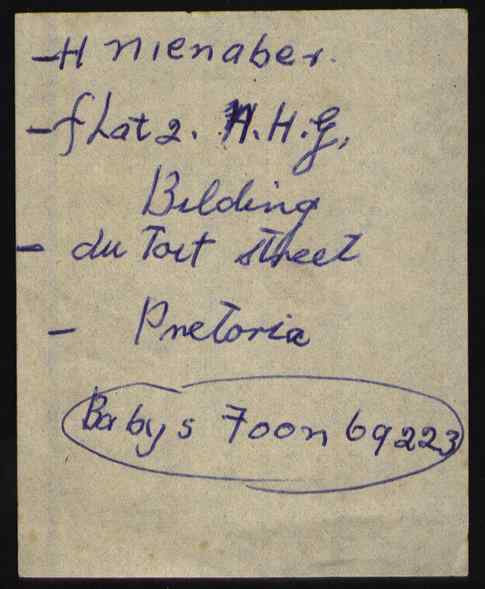 - H nienaber.
- flat 2. H.H.G,
Bilding
- du Toit street
- Pretoria
Babys Foon 69223